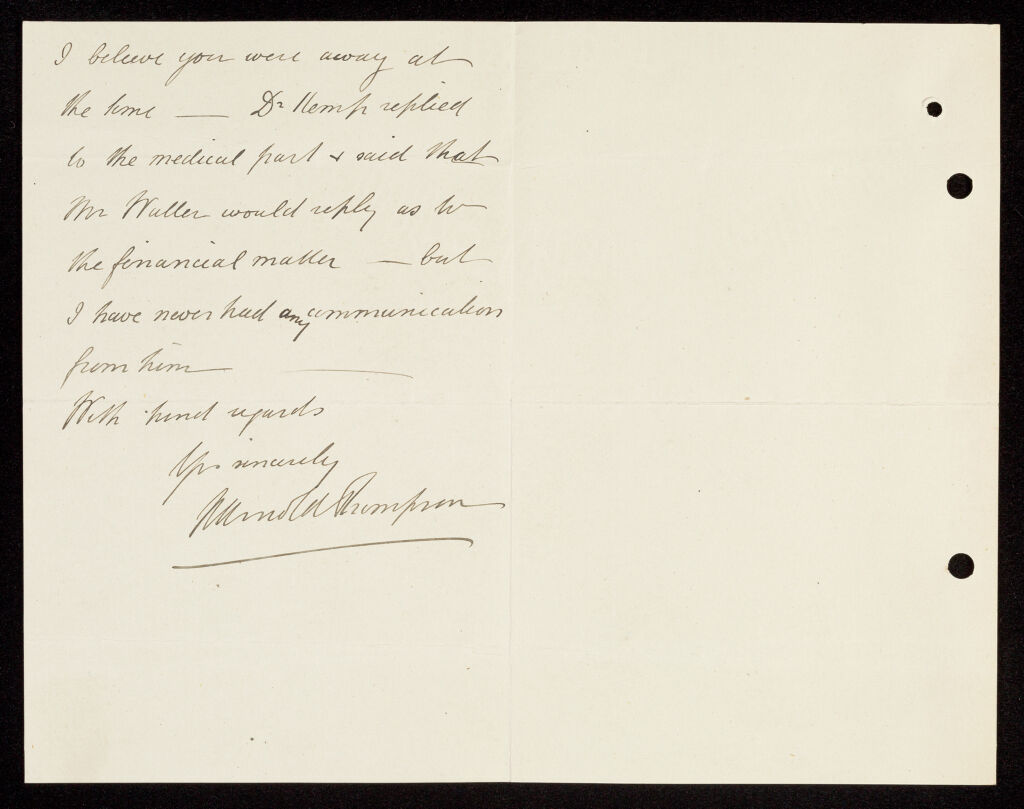 I believe you were away at
the time — Dr Kemp replied
to the medical part & said that
Mr Waller would reply as to
the financial matter — but
I have never had any communication
from him —
With kind regards
Yrs sincerely
J Arnold Thompson